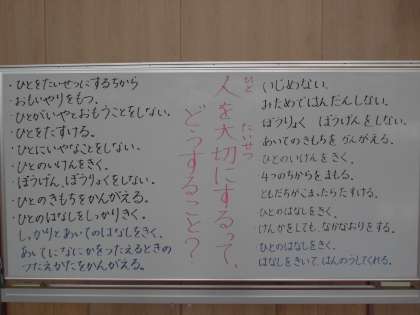 人を大切にするって、
ひと
たいせつ
どうすること？
・ひとをたいせつにするちから
・おもいやりをもつ。
・ひとがいやとおもうことをしない。
・ひとをたすける。
・ひとにいやなことをしない。
・ひとのいけんをきく。
・ぼうげん、ぼうりょくをしない。
・ひとのきもちをかんがえる。
・ひとのはなしをしっかりきく。
しっかりとあいてのはなしをきく。
あいてになにかをつたえるときの
つたえかたをかんがえる。
いじめない。
みためではんだんしない。
ぼうりょく ぼうげんをしない。
あいてのきもちを かんがえる。
ひとのいけんをきく。
4つのちからをまもる。
ともだちがこまったらたすける。
ひとのはなしをきく。
けんかをしても、なかなおりをする。
ひとのはなしをきく。
はなしをきいて、はんのうしてくれる。